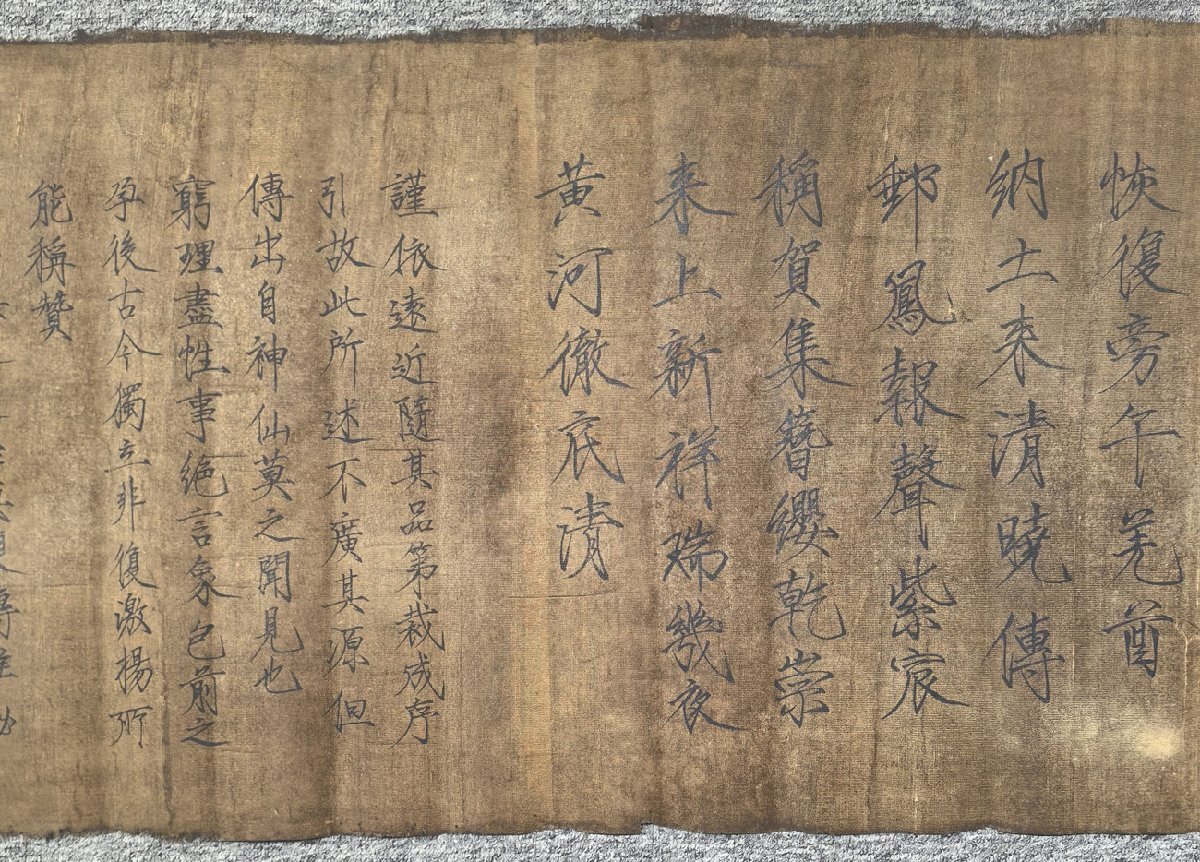 恢復旁午羌酋
納土来清曉傳
郵鳳報聲紫宸
稱賀集簪纓乾崇
来上新祥瑞幾夜
黄河徹底清
謹依遠近隨其品第裁成序
引故此所述不廣其源但
傳出自神仙莫之聞見也
窮理盡性事絕言象包前之
孕後古今獨立非復激揚所
能稱贊